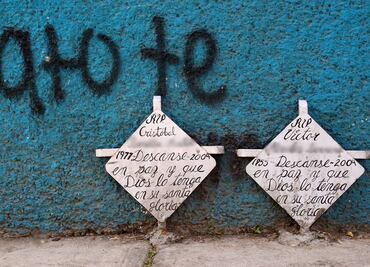 te
RIP
Cristobal
1977 Descanse-2004
en paz y que
Dios lo tenga
en su santa
gloria
RIP
Victor
1955 Descanse-2004
en paz y que
Dios lo tenga
en su santa
gloria